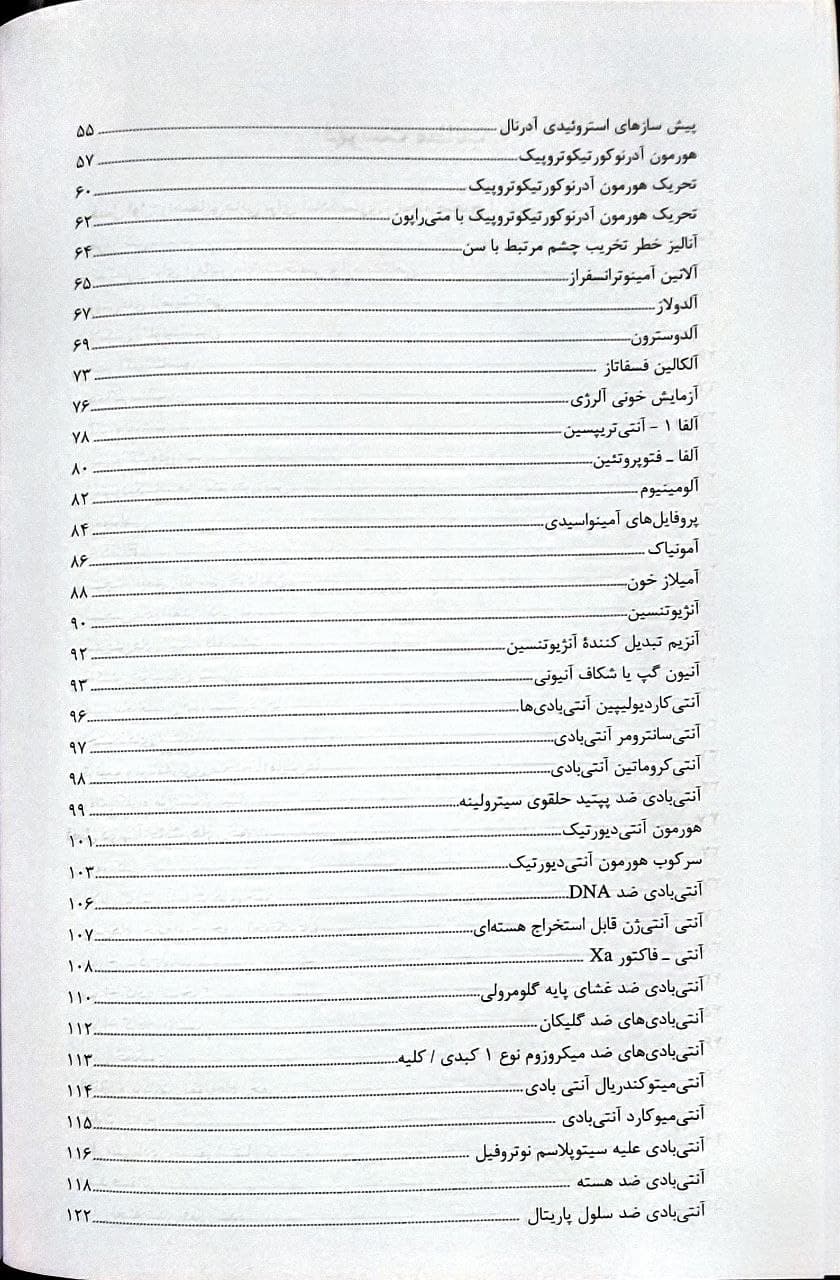 پیش سازهای استروئیدی آدرنال ۵۵
هورمون آدرنوکورتیکوتروپیک ۵۷
تحریک هورمون آدرنوکورتیکوتروپیک ۶۰
تحریک هورمون آدرنوکورتیکوتروپیک با متی‌راپون ۶۲
آنالیز خطر تخریب چشم مرتبط با سن ۶۴
آلانین آمینوترانسفراز ۶۵
آلدولاز ۶۷
آلدوسترون ۶۹
آلکالین فسفاتاز ۷۳
آزمایش خونی آلرژی ۷۶
آلفا ۱ - آنتی‌تریپسین ۷۸
آلفا ـ فتوپروتئین ۸۰
آلومینیوم ۸۲
پروفایل‌های آمینواسیدی ۸۴
آمونیاک ۸۶
آمیلاز خون ۸۸
آنژیوتنسین ۹۰
آنزیم تبدیل کنندهٔ آنژیوتنسین ۹۲
آنیون گپ یا شکاف آنیونی ۹۳
آنتی‌کاردیولیپین آنتی‌بادی‌ها ۹۶
آنتی‌سانترومر آنتی‌بادی ۹۷
آنتی‌کروماتین آنتی‌بادی ۹۸
آنتی‌بادی ضد پپتید حلقوی سیترولینه ۹۹
هورمون آنتی‌دیورتیک ۱۰۱
سرکوب هورمون آنتی‌دیورتیک ۱۰۳
آنتی‌بادی ضد DNA ۱۰۶
آنتی آنتی‌ژن قابل استخراج هسته‌ای ۱۰۷
آنتی ـ فاکتور Xa ۱۰۸
آنتی‌بادی ضد غشای پایه گلومرولی ۱۱۰
آنتی‌بادی‌های ضد گلیکان ۱۱۲
آنتی‌بادی‌های ضد میکروزوم نوع ۱ کبدی / کلیه ۱۱۳
آنتی‌میتوکندریال آنتی بادی ۱۱۴
آنتی‌میوکارد آنتی‌بادی ۱۱۵
آنتی‌بادی علیه سیتوپلاسم نوتروفیل ۱۱۶
آنتی‌بادی ضد هسته ۱۱۸
آنتی‌بادی ضد سلول پاریتال ۱۲۲